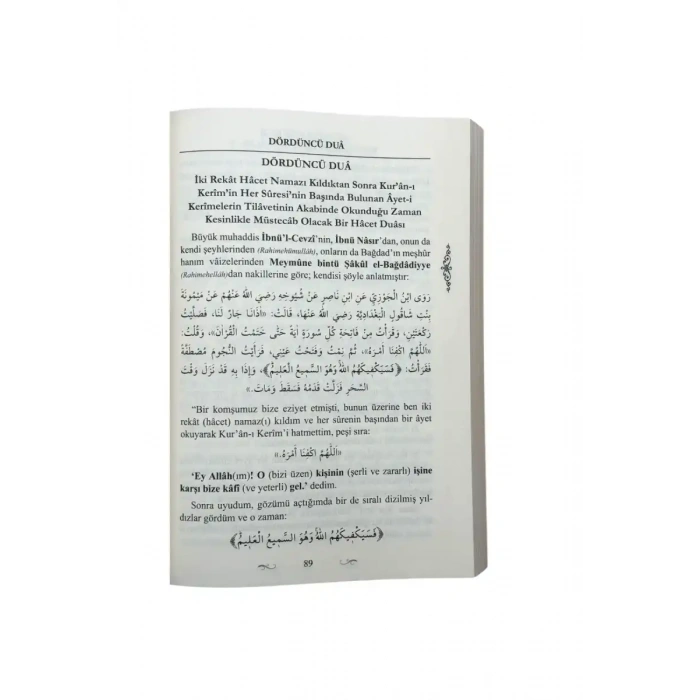 DÖRDÜNCÜ DUÂ
DÖRDÜNCÜ DUÂ
İki Rekât Hâcet Namazı Kıldıktan Sonra Kur'ân-ı
Kerîm'in Her Sûresi'nin Başında Bulunan Âyet-i
Kerîmelerin Tilâvetinin Akabinde Okunduğu Zaman
Kesinlikle Müstecâb Olacak Bir Hâcet Duâsı
Büyük muhaddis İbnü'l-Cevzî'nin, İbnü Nâsır'dan, onun da
kendi şeyhlerinden (Rahimehümullâh), onların da Bağdad'ın meşhur
hanım vâizelerinden Meymûne bintü Şâkûl el-Bağdâdiyye
(Rahimehellâh)dan nakillerine göre; kendisi şöyle anlatmıştır:
رَوَى ابْنُ الْجَوْزِيِّ عَنِ ابْنِ نَاصِرٍ عَنْ شُيُوخِهِ رَضِيَ اللهُ عَنْهُمْ عَنْ مَيْمُونَةَ
بِنْتِ شَاقُولِ الْبَغْدَادِيَّةِ رَضِيَ اللهُ عَنْهَا، قَالَتْ: «اٰذَانَا جَارٌ لَنَا، فَصَلَّيْتُ
رَكْعَتَيْنِ، وَقَرَأْتُ مِنْ فَاتِحَةِ كُلِّ سُورَةٍ اٰيَةً حَتّٰى خَتَمْتُ الْقُرْاٰنَ»، وَقُلْتُ:
«اَللّٰهُمَّ اكْفِنَا أَمْرَهُ»، ثُمَّ نِمْتُ وَفَتَحْتُ عَيْنِي، فَرَأَيْتُ النُّجُومَ مُصْطَفَّةً
فَقَرَأْتُ: ﴿فَسَيَكْفِيكَهُمُ اللهُ وَهُوَ السَّمِيعُ الْعَلِيمُ﴾، وَإِذَا بِهِ قَدْ نَزَلَ وَقْتَ
السَّحَرِ فَزَلَّتْ قَدَمُهُ فَسَقَطَ وَمَاتَ.»
"Bir komşumuz bize eziyet etmişti, bunun üzerine ben iki
rekât (hâcet) namaz(ı) kıldım ve her sûrenin başından bir âyet
okuyarak Kur'ân-ı Kerîm'i hatmettim, peşi sıra:
«اَللّٰهُمَّ اكْفِنَا أَمْرَهُ.»
'Ey Allâh(ım)! O (bizi üzen) kişinin (şerli ve zararlı) işine
karşı bize kâfî (ve yeterli) gel.' dedim.
Sonra uyudum, gözümü açtığımda bir de sıralı dizilmiş yıl-
dızlar gördüm ve o zaman:
﴿فَسَيَكْفِيكَهُمُ اللهُ وَهُوَ السَّمِيعُ الْعَلِيمُ﴾
89